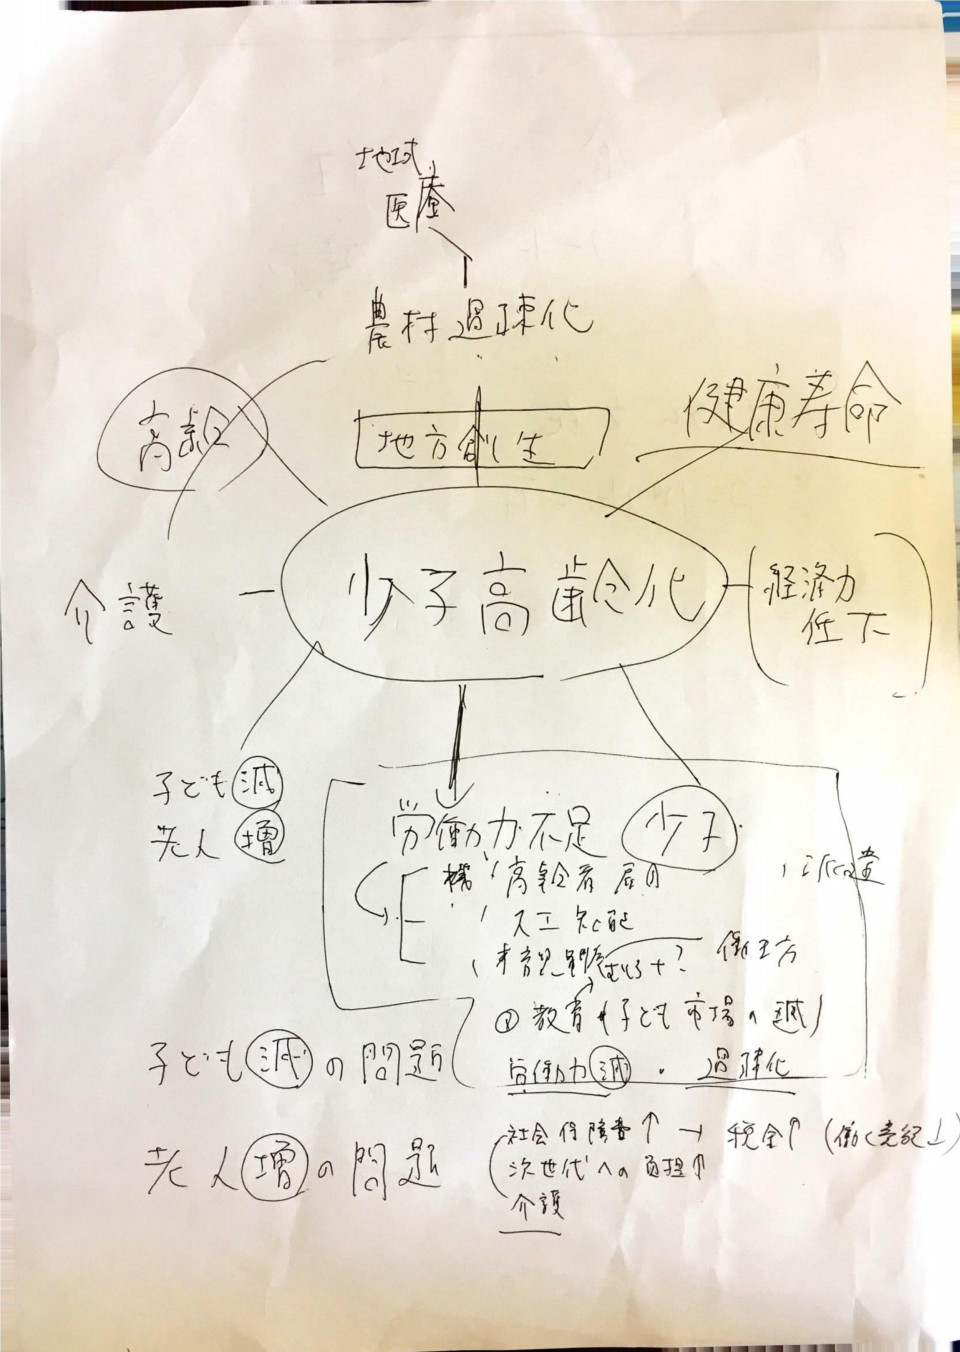 地域
医療
農村過疎化
高齢
地方創生
健康寿命
少子高齢化
介護
経済力
低下
子ども減
老人増
労働力不足
少子
高齢者雇用
人工知能
働き方
① 教育(子ども市場の減)
子ども減の問題
労働力減・過疎化
老人増の問題
社会保障費↑→税金↑(働く
次世代への負担↑
介護